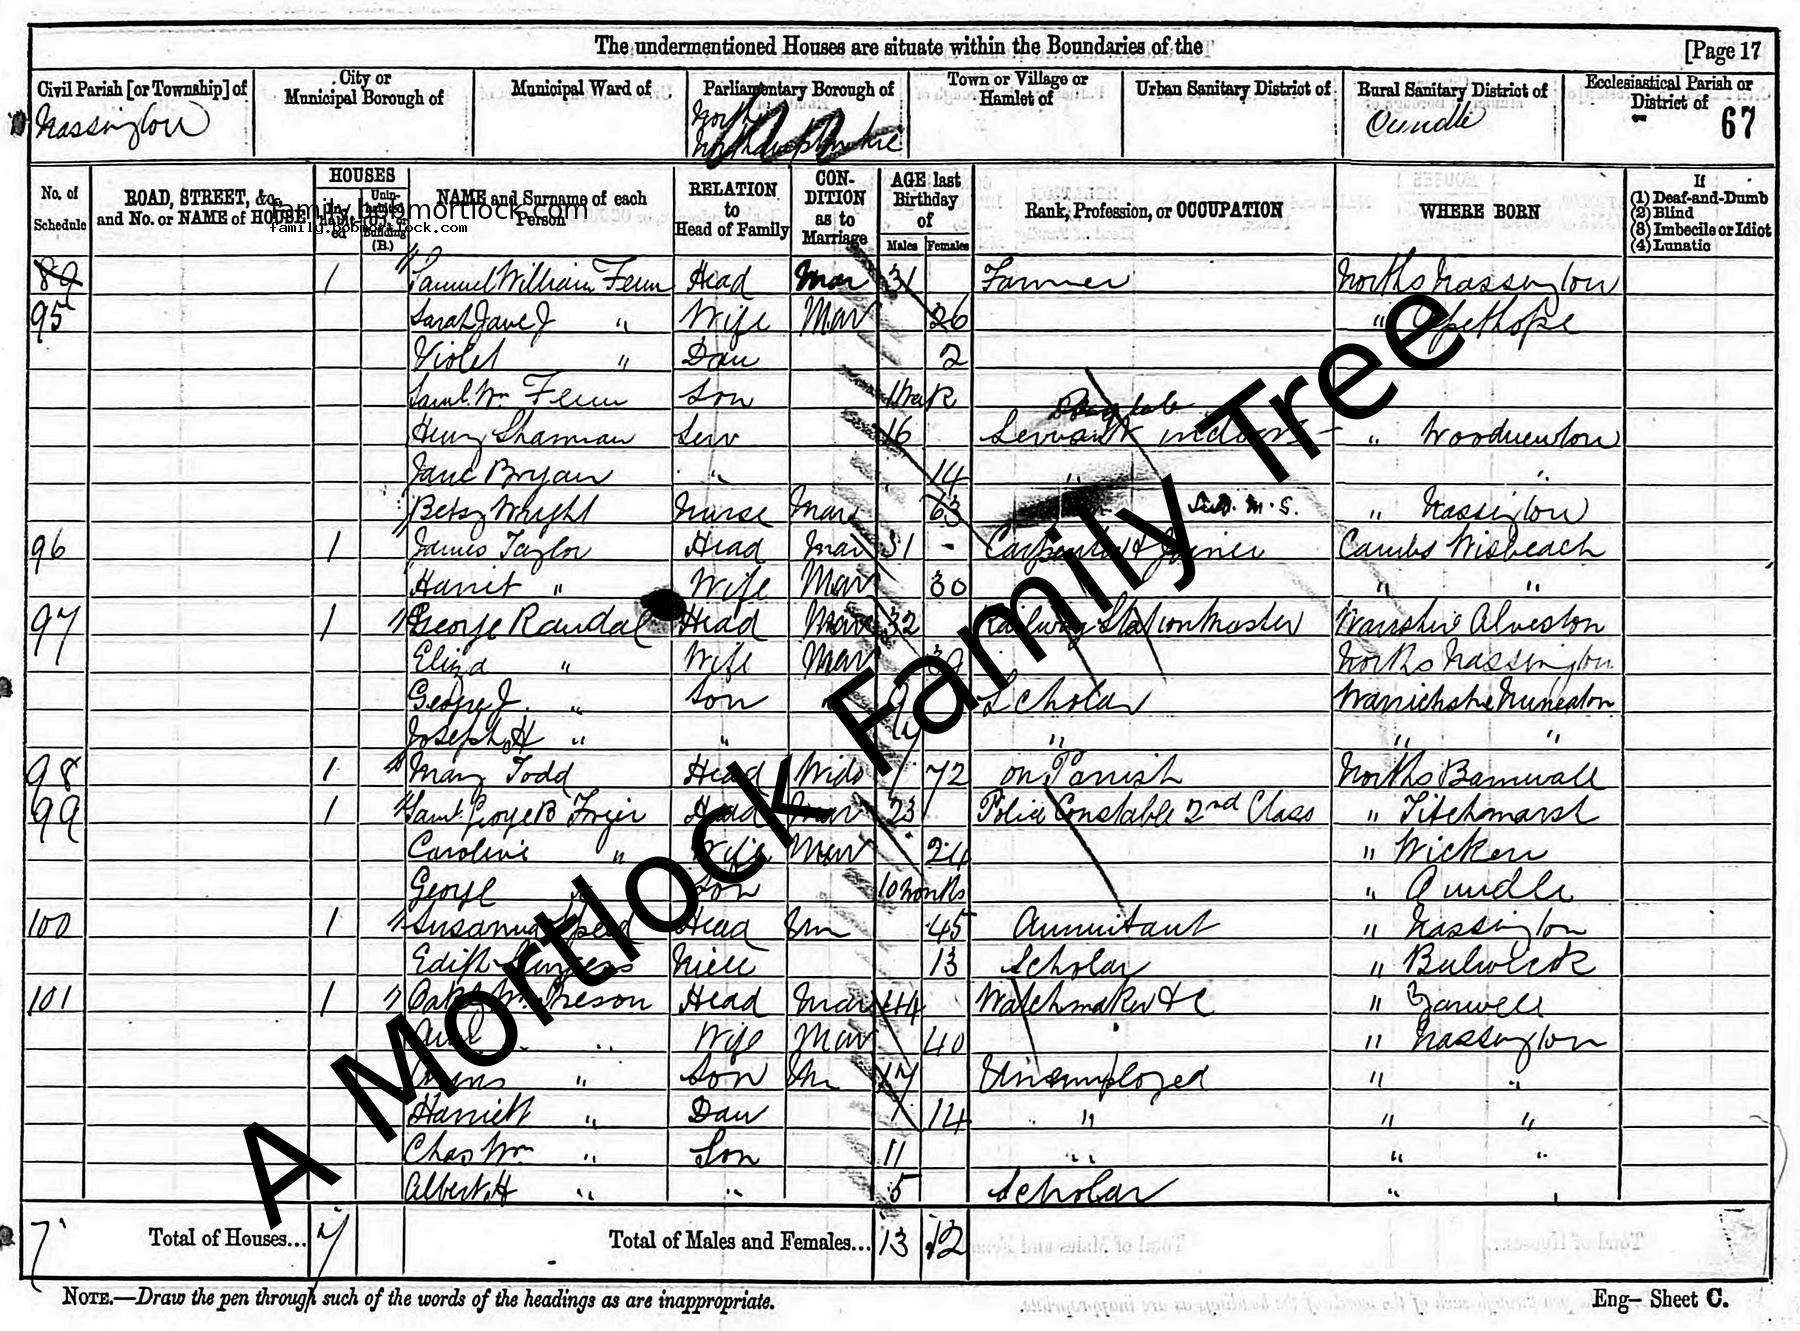 The undermentioned Houses are situate within the Boundaries of the [Page 17
Civil Parish [or Township] of
Nassington
City or Municipal Borough of
Municipal Ward of
Parliamentary Borough of
North
Northamptonshire
Town or Village or Hamlet of
Urban Sanitary District of
Rural Sanitary District of
Oundle
Ecclesiastical Parish or District of
67
No. of Schedule
ROAD, STREET, &c., and No. or NAME of HOUSE
HOUSES
In-habit-ed
Unin-habited or Building (B.)
NAME and Surname of each Person
RELATION to Head of Family
CON-DITION as to Marriage
AGE last Birthday of
Males Females
Rank, Profession, or OCCUPATION
WHERE BORN
If
(1) Deaf-and-Dumb
(2) Blind
(3) Imbecile or Idiot
(4) Lunatic
family.bobmortlock.com
family.bobmortlock.com
89 1 Samuel William Fenn Head Mar 31 Farmer Norths Nassington
95 Sarah Jane J " Wife Mar 26 " Apethope
Violet " Dau 2
Saml. Wm Fenn Son
Henry Sharman Serv 16 Servant indoors " Woodnewton
Jane Bryan " 14 " "
Betsy Wright Nurse Mar 63 " Nassington
96 1 James Taylor Head Mar 31 - Carpenter & Joiner Cambs Wisbeach
Harriet " Wife Mar 30 " "
97 1 George Randal Head Mar 32 Railway Station Master Alveston
Eliza " Wife Mar 39 Norths Nassington
George J. " Son 9 Scholar Nuneaton
Joseph H " " " " "
98 1 Mary Todd Head Wido 72 on Parish Norths Barnwall
99 1 Saml. George B Head Mar 23 Police Constable 2nd Class " Titchmarsh
Caroline " Wife Mar 24 " Wicken
George " Son 10 months " Oundle
100 1 Susanna Head Un 45 Annuitant " Nassington
Edith Niece 13 Scholar " Bulwick
101 1 Head Mar 44 Watchmaker &c " Yarwell
" Wife Mar 40 " Nassington
" Son Un 17 Unemployed " "
Harriett " Dau 14 " " "
Chas Wm " Son 11 " " "
Albert H " " 5 Scholar "
7 Total of Houses... 7 Total of Males and Females... 13 12
NOTE.—Draw the pen through such of the words of the headings as are inappropriate.
Eng— Sheet C.
A Mortlock Family Tree